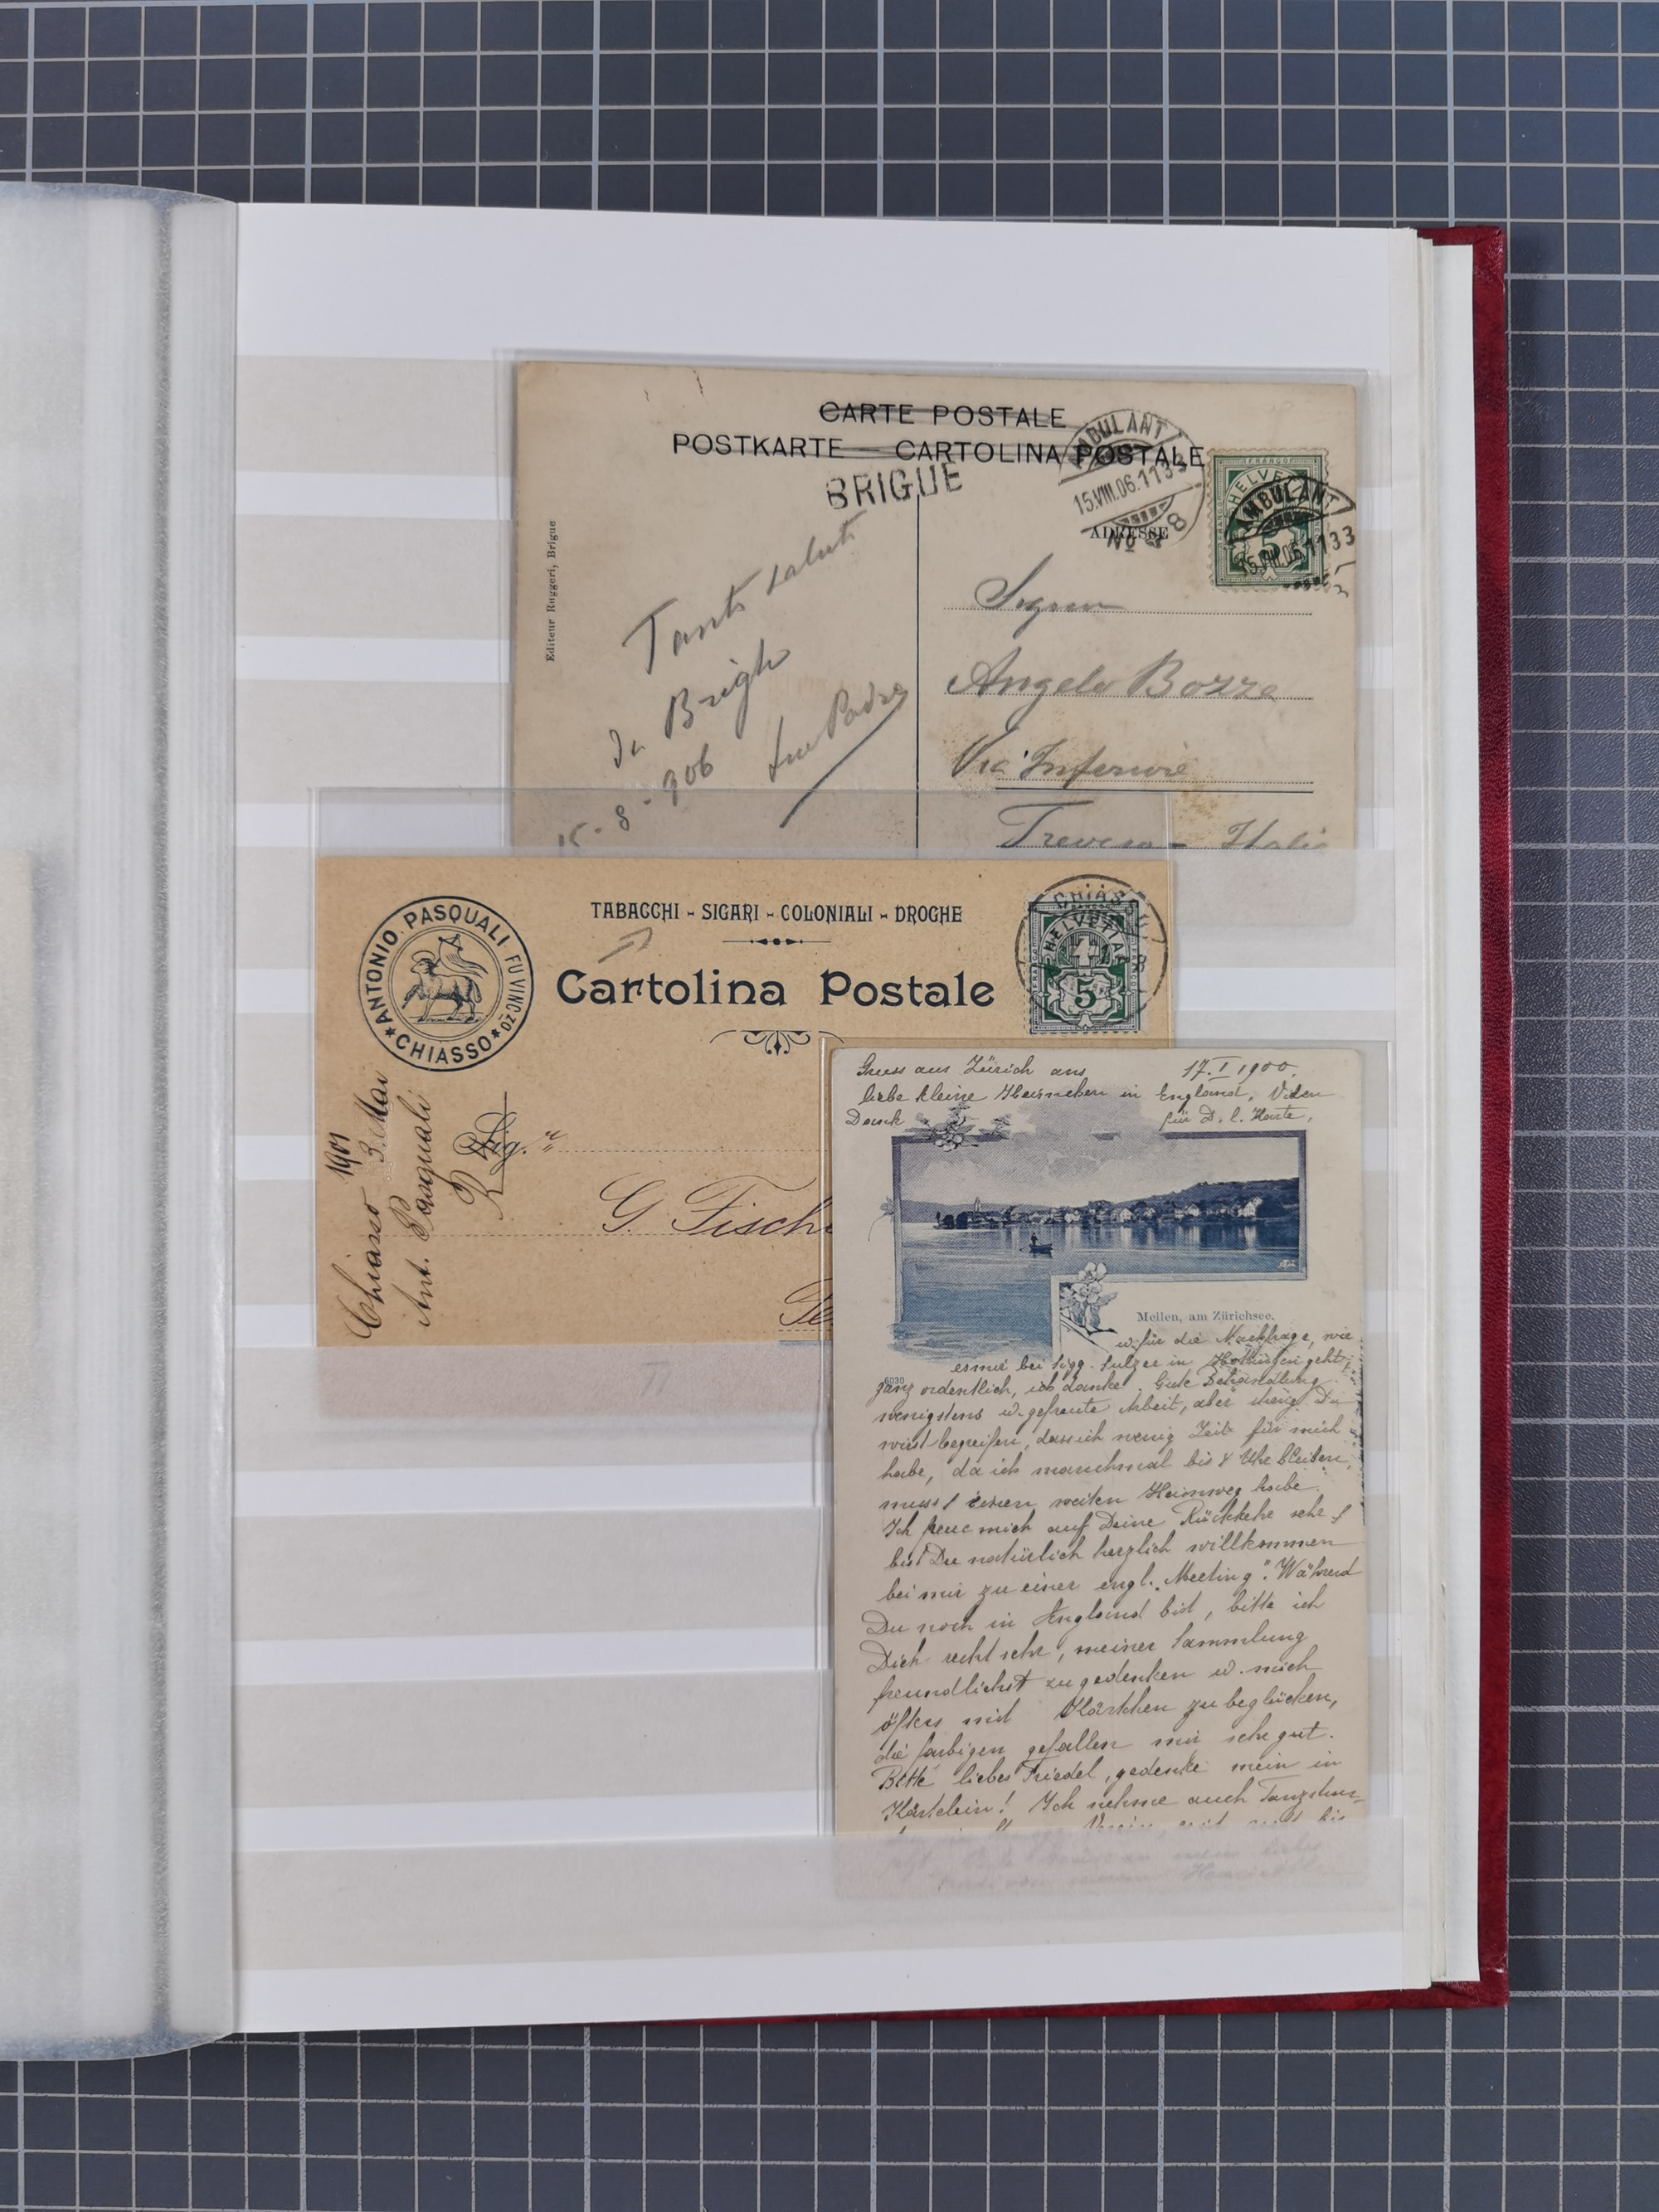 CARTE POSTALE
POSTKARTE — CARTOLINA POSTALE
BRIGUE
AMBULANT
15.VIII.06.1133
No 8
AMBULANT
15.VIII.06.1133
FRANCO
HELVETIA
5
ADRESSE
Editeur Ruggeri, Brigue
Tanti saluti
da Briga
15-8-906
tuo Padre
Signor
Angelo Bozza
Via Inferiore
Treviso - Italia
TABACCHI - SIGARI - COLONIALI - DROGHE
Cartolina Postale
ANTONIO PASQUALI FU VINC.ZO
CHIASSO
CHIASSO
HELVETIA
5
Chiasso 3. Mai
1901
Ant. Pasquali
Sig."
G. Fisch
Gruss aus Zürich ans 17. I 1900.
liebe kleine in England. Vielen
Dank für D. l. Karte,
Meilen, am Zürichsee.
u. für die Nachfrage, wie
es mir bei Sulzer in Hottingen geht,
6030
ganz ordentlich, ich danke. Gute Behandlung
wenigstens u. gefreute Arbeit, aber streng. Du
wirst begreifen, dass ich wenig Zeit für mich
habe, da ich manchmal bis 8 Uhr bleiben
muss & einen weiten Heimweg habe.
Ich freue mich auf Deine Rückkehr sehr &
bist Du natürlich herzlich willkommen
bei mir zu einer engl. "Meeting". Während
Du noch in England bist, bitte ich
Dich recht sehr, meiner Sammlung
freundlichst zu gedenken u. mich
öfters mit Kärtchen zu beglücken,
die farbigen gefallen mir sehr gut.
Bitte liebes Friedel, gedenke mein in
Kärtelein! Ich nehme auch Tanzstun-